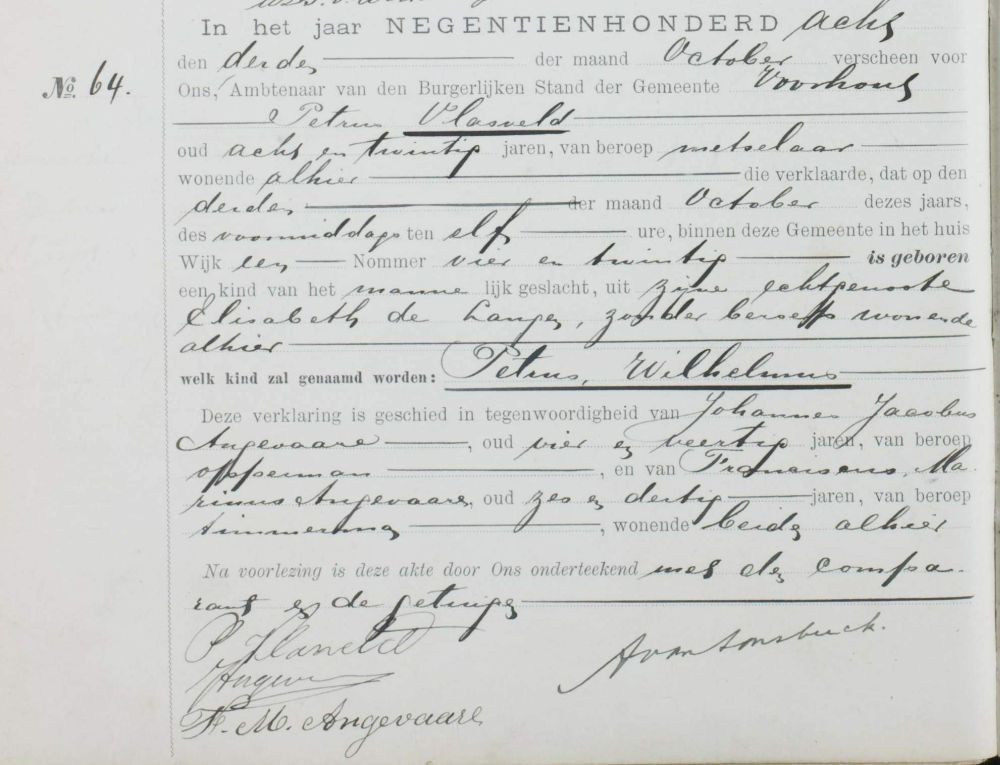 In het jaar NEGENTIENHONDERD acht
den derden der maand October verscheen voor
No. 64.
Ons, Ambtenaar van den Burgerlijken Stand der Gemeente Voorhout
Petrus Vlasveld
oud acht en twintig jaren, van beroep metselaar
wonende alhier die verklaarde, dat op den
derden der maand October dezes jaars,
des voormiddags ten elf ure, binnen deze Gemeente in het huis
Wijk een Nommer vier en twintig is geboren
een kind van het mannelijk geslacht, uit zijne echtgenoote
Elisabeth de Lange, zonder beroep wonende
alhier
welk kind zal genaamd worden: Petrus, Wilhelmus
Deze verklaring is geschied in tegenwoordigheid van Johannes Jacobus
Angevaare, oud vier en veertig jaren, van beroep
opperman, en van Franciscus, Ma-
rinus Angevaare, oud zes en dertig jaren, van beroep
timmerman, wonende beide alhier
Na voorlezing is deze akte door Ons onderteekend met den compa-
rant en de getuigen
P. Vlasveld
A van Tonsbeeck.
F. M. Angevaare